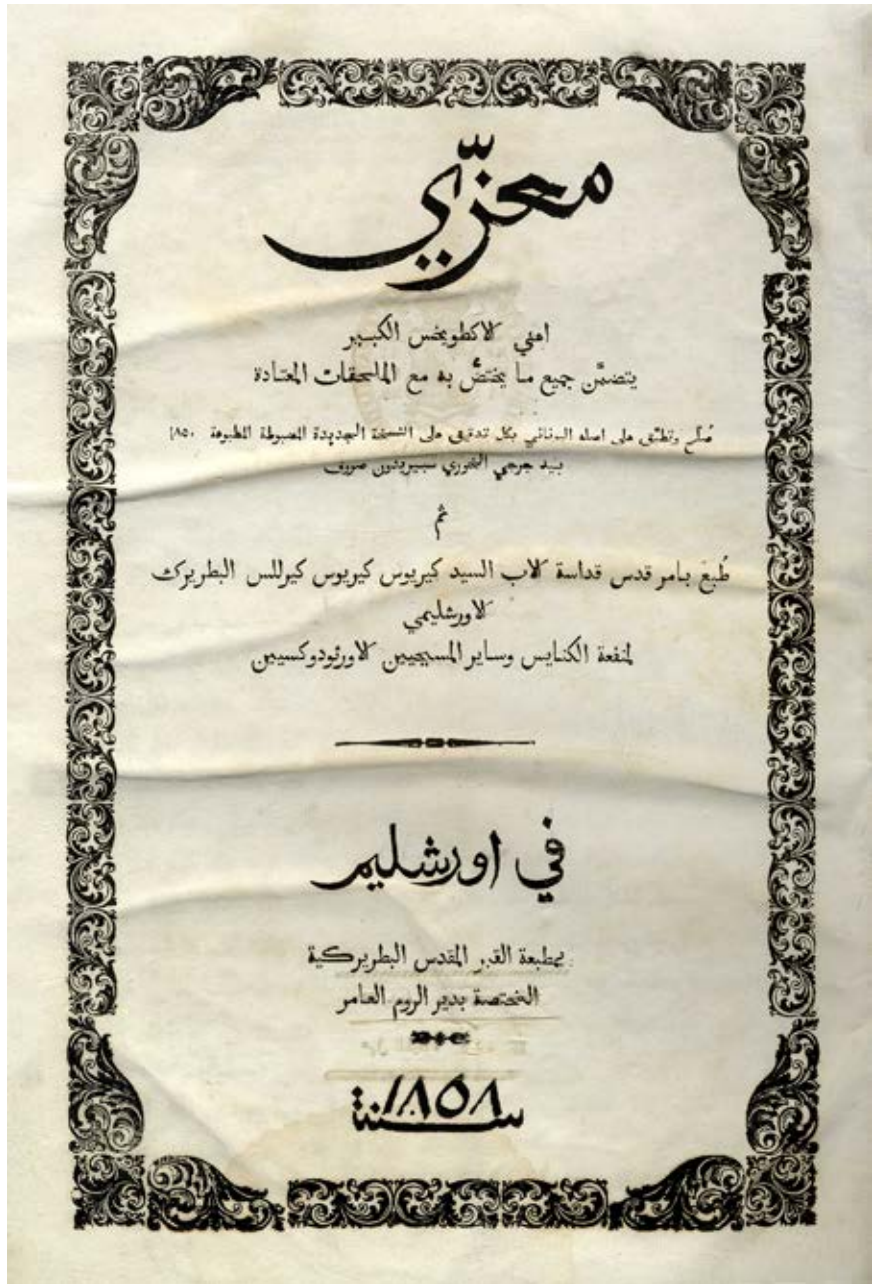 معزّي
اعني الاكطويخس الكبير
يتضمَّن جميع ما يختصُّ به مع الملحقات المعتادة
صُلّح وتطبَّق على اصله اليوناني بكل تدقيق على النسخة الجديدة المضبوطة المطبوعة ١٨٥٠
بيد جرجي الخوري سبيريدون صروف
ثم
طُبع بامر قدس قداسة الاب السيد كيريوس كيريوس كيرللس البطريرك
الاورشليمي
لمنفعة الكنايس وساير المسيحيين الاورثودوكسيين
في اورشليم
بمطبعة القبر المقدس البطريركية
المختصة بدير الروم العامر
سنة ١٨٥٨